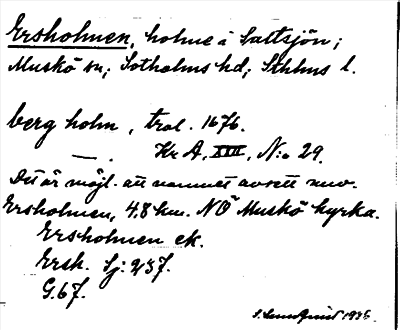 Ersholmen, holme i Saltsjön;
Muskö sn; Sotholms hd; Sthlms l.
berg holm, trol. 1676.
— . Kr A, XVII, N:o 29.
Det är möjl. att namnet avsett nuv.
Ersholmen, 4.8 km. NO Muskö kyrka.
Ersholmen ek.
Ersh. Sj: 237.
G.67.
S. Lundqvist 1935.